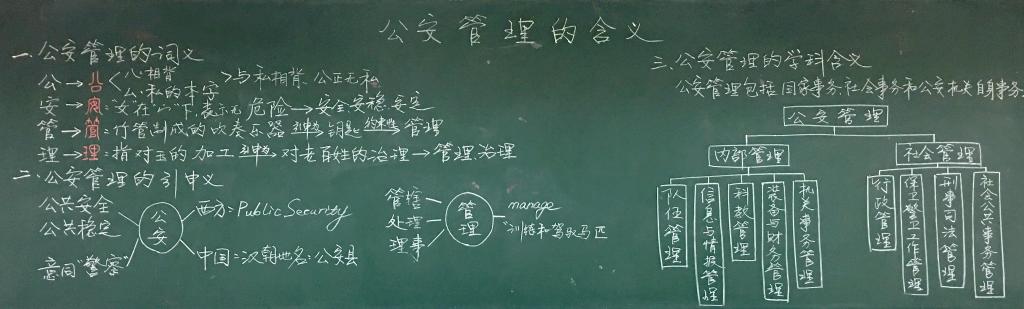 公安管理的含义
一、公安管理的词义
公→公
八:相背
厶:私的本字
与私相背.公正无私
安→安:"女"在"宀"下,表示无危险→安全安稳安定
管→管:竹管制成的吹奏乐器→钥匙→管理
理→理:指对玉的加工→对老百姓的治理→管理.治理
二、公安管理的引申义
公共安全
公共稳定
意同"警察"
公安
西方:Public Security
中国:汉朝地名:公安县
管辖
处理
理事
管理
manage
"训练和驾驭马匹
三、公安管理的学科含义
公安管理包括国家事务社会事务和公安机关自身事务
公安管理
内部管理
社会管理
队伍管理
信息与情报管理
科教管理
装备与财务管理
机关事务管理
行政管理
保卫警卫工作管理
刑事司法管理
社会公共事务管理